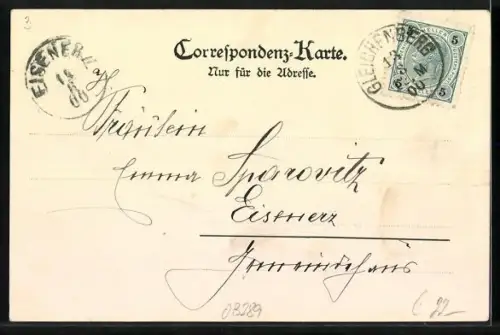 3
Correspondenz-Karte.
Nur für die Adresse.
EISENERZ
GLEICHENBERG
5 5
Fräulein
Emma Sparovitz
Eisenerz
Gemeindehaus
03289